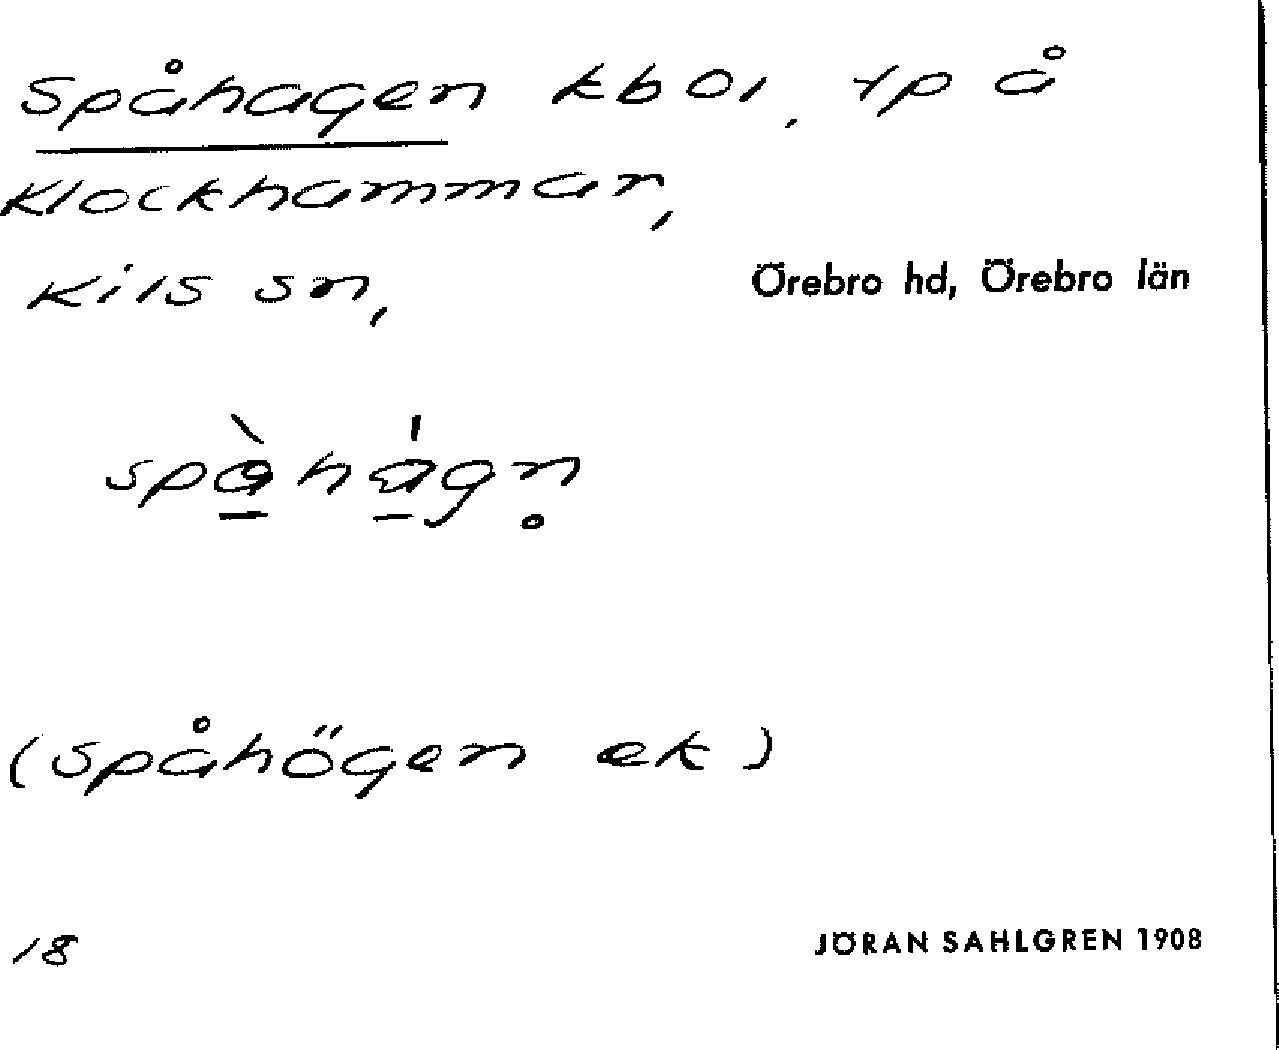 Spåhagen kbol, tp å
Klockhammar,
Kils sn,
Örebro hd, Örebro län
spàhágn̥
(Spåhögen ek)
18
JÖRAN SAHLGREN 1908